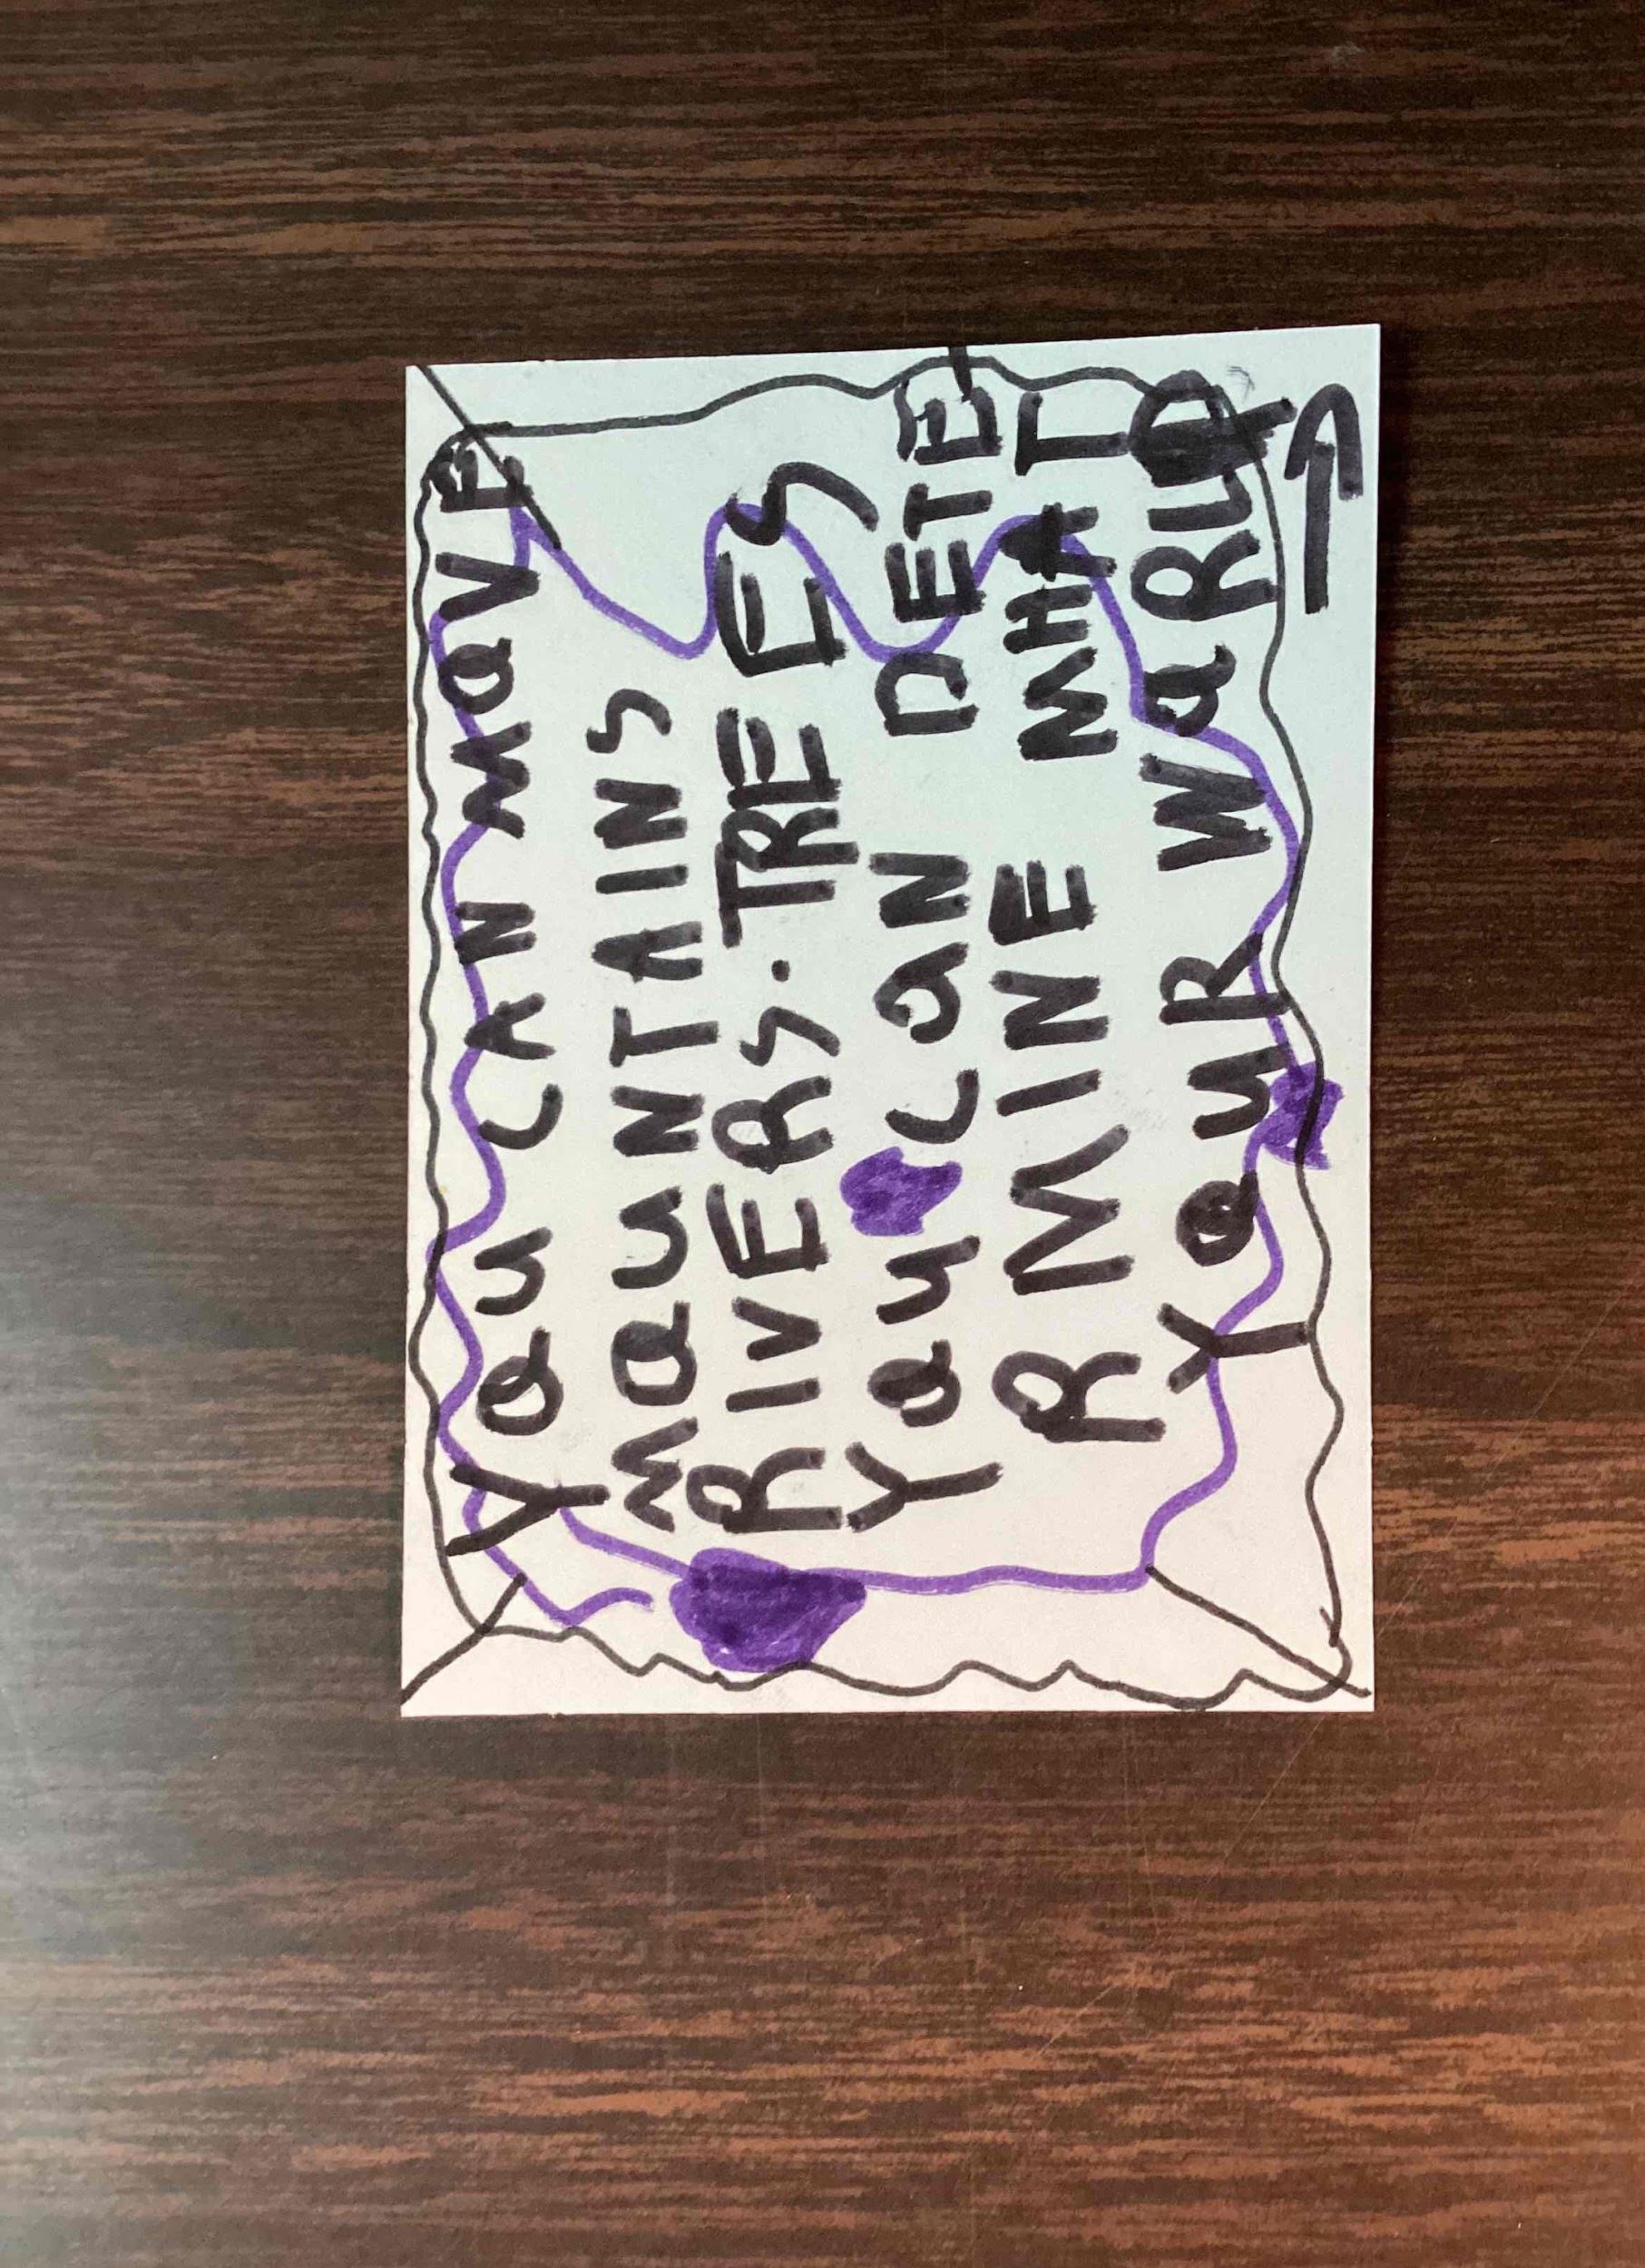 YOU CAN MOVE
MOUNTAINS
RIVERS. TREES
YOU CAN DETE
RMINE MHAT
YOUR WORLD
IS